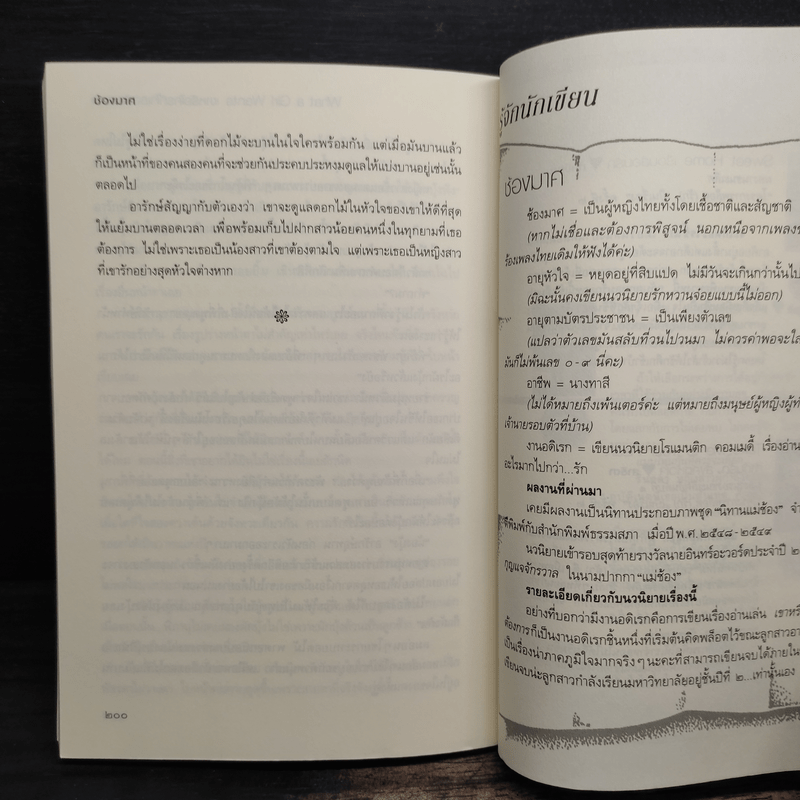 ช้องมาศ
ไม่ใช่เรื่องง่ายที่ดอกไม้จะบานในใจใครพร้อมกัน แต่เมื่อมันบานแล้ว
ก็เป็นหน้าที่ของคนสองคนที่จะช่วยกันประคบประหงมดูแลให้แบ่งบานอยู่เช่นนั้น
ตลอดไป
อารักษ์สัญญากับตัวเองว่า เขาจะดูแลดอกไม้ในหัวใจของเขาให้ดีที่สุด
ให้แย้มบานตลอดเวลา เพื่อพร้อมเก็บไปฝากสาวน้อยคนหนึ่งในทุกยามที่เธอ
ต้องการ ไม่ใช่เพราะเธอเป็นน้องสาวที่เขาต้องตามใจ แต่เพราะเธอเป็นหญิงสาว
ที่เขารักอย่างสุดหัวใจต่างหาก
๒๐๐
รู้จักนักเขียน
ช้องมาศ
ช้องมาศ = เป็นผู้หญิงไทยทั้งโดยเชื้อชาติและสัญชาติ
(หากไม่เชื่อและต้องการพิสูจน์ นอกเหนือจากเพลงช
ร้องเพลงไทยเดิมให้ฟังได้ค่ะ)
อายุหัวใจ = หยุดอยู่ที่สิบแปด ไม่มีวันจะเกินกว่านั้นไป
(มิฉะนั้นคงเขียนนวนิยายรักหวานจ๋อยแบบนี้ไม่ออก)
อายุตามบัตรประชาชน = เป็นเพียงตัวเลข
(แปลว่าตัวเลขมันสลับที่วนไปวนมา ไม่ควรค่าพอจะใส
มันก็ไม่พ้นเลข ๐-๙ นี่คะ)
อาชีพ = นางทาสี
(ไม่ได้หมายถึงเพ้นเตอร์ค่ะ แต่หมายถึงมนุษย์ผู้หญิงผู้ท
เจ้านายรอบตัวที่บ้าน)
งานอดิเรก = เขียนนวนิยายโรแมนติก คอมเมดี้ เรื่องอ่าน
อะไรมากไปกว่า...รัก
ผลงานที่ผ่านมา
เคยมีผลงานเป็นนิทานประกอบภาพชุด “นิทานแม่ช้อง” จำ
ตีพิมพ์กับสำนักพิมพ์ธรรมสภา เมื่อปี พ.ศ. ๒๕๔๘-๒๕๔๙
นวนิยายเข้ารอบสุดท้ายรางวัลนายอินทร์อะวอร์ดประจำปี ๒
กุญแจจักรวาล ในนามปากกา “แม่ช้อง”
รายละเอียดเกี่ยวกับนวนิยายเรื่องนี้
อย่างที่บอกว่ามีงานอดิเรกคือการเขียนเรื่องอ่านเล่น เขาหรื
ต้องการ ก็เป็นงานอดิเรกชิ้นหนึ่งที่เริ่มต้นคิดพล็อตไว้ขณะลูกสาวอา
เป็นเรื่องน่าภาคภูมิใจมากจริงๆ นะคะที่สามารถเขียนจบได้ภายใน
เขียนจบน่ะลูกสาวกำลังเรียนมหาวิทยาลัยอยู่ชั้นปีที่ ๒...เท่านั้นเอง